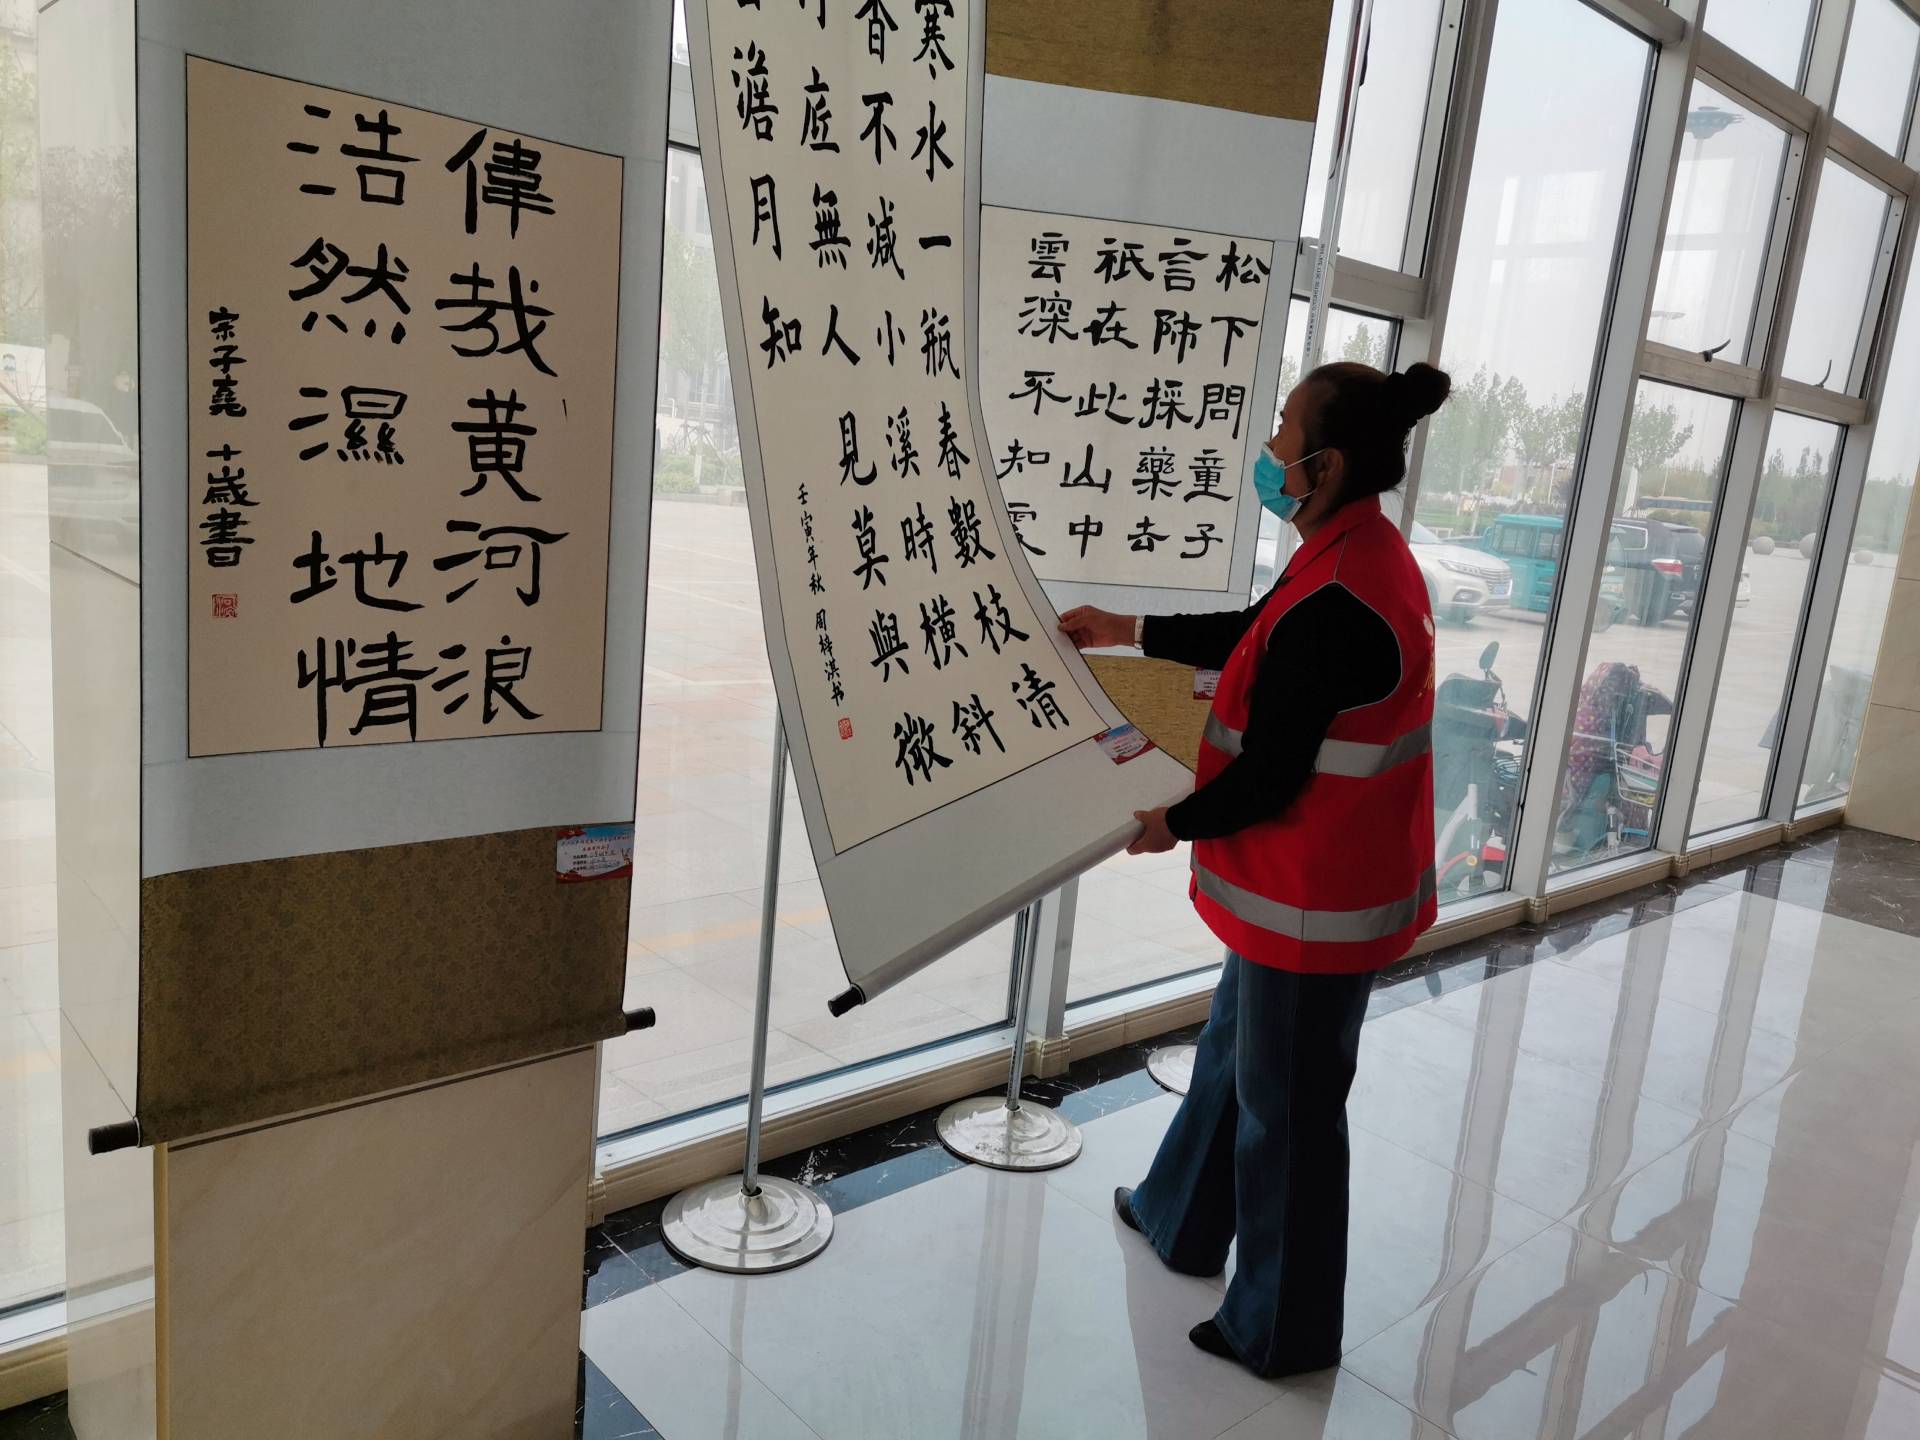 偉哉黄河浪
浩然濕地情
宗子堯 十歲書
寒水一瓶春數枝清
香不減小溪時橫斜
竹底無人見莫與微
雲澹月知
壬寅年秋 周梓淇书
松下問童子
言師採藥去
祇在此山中
雲深不知處